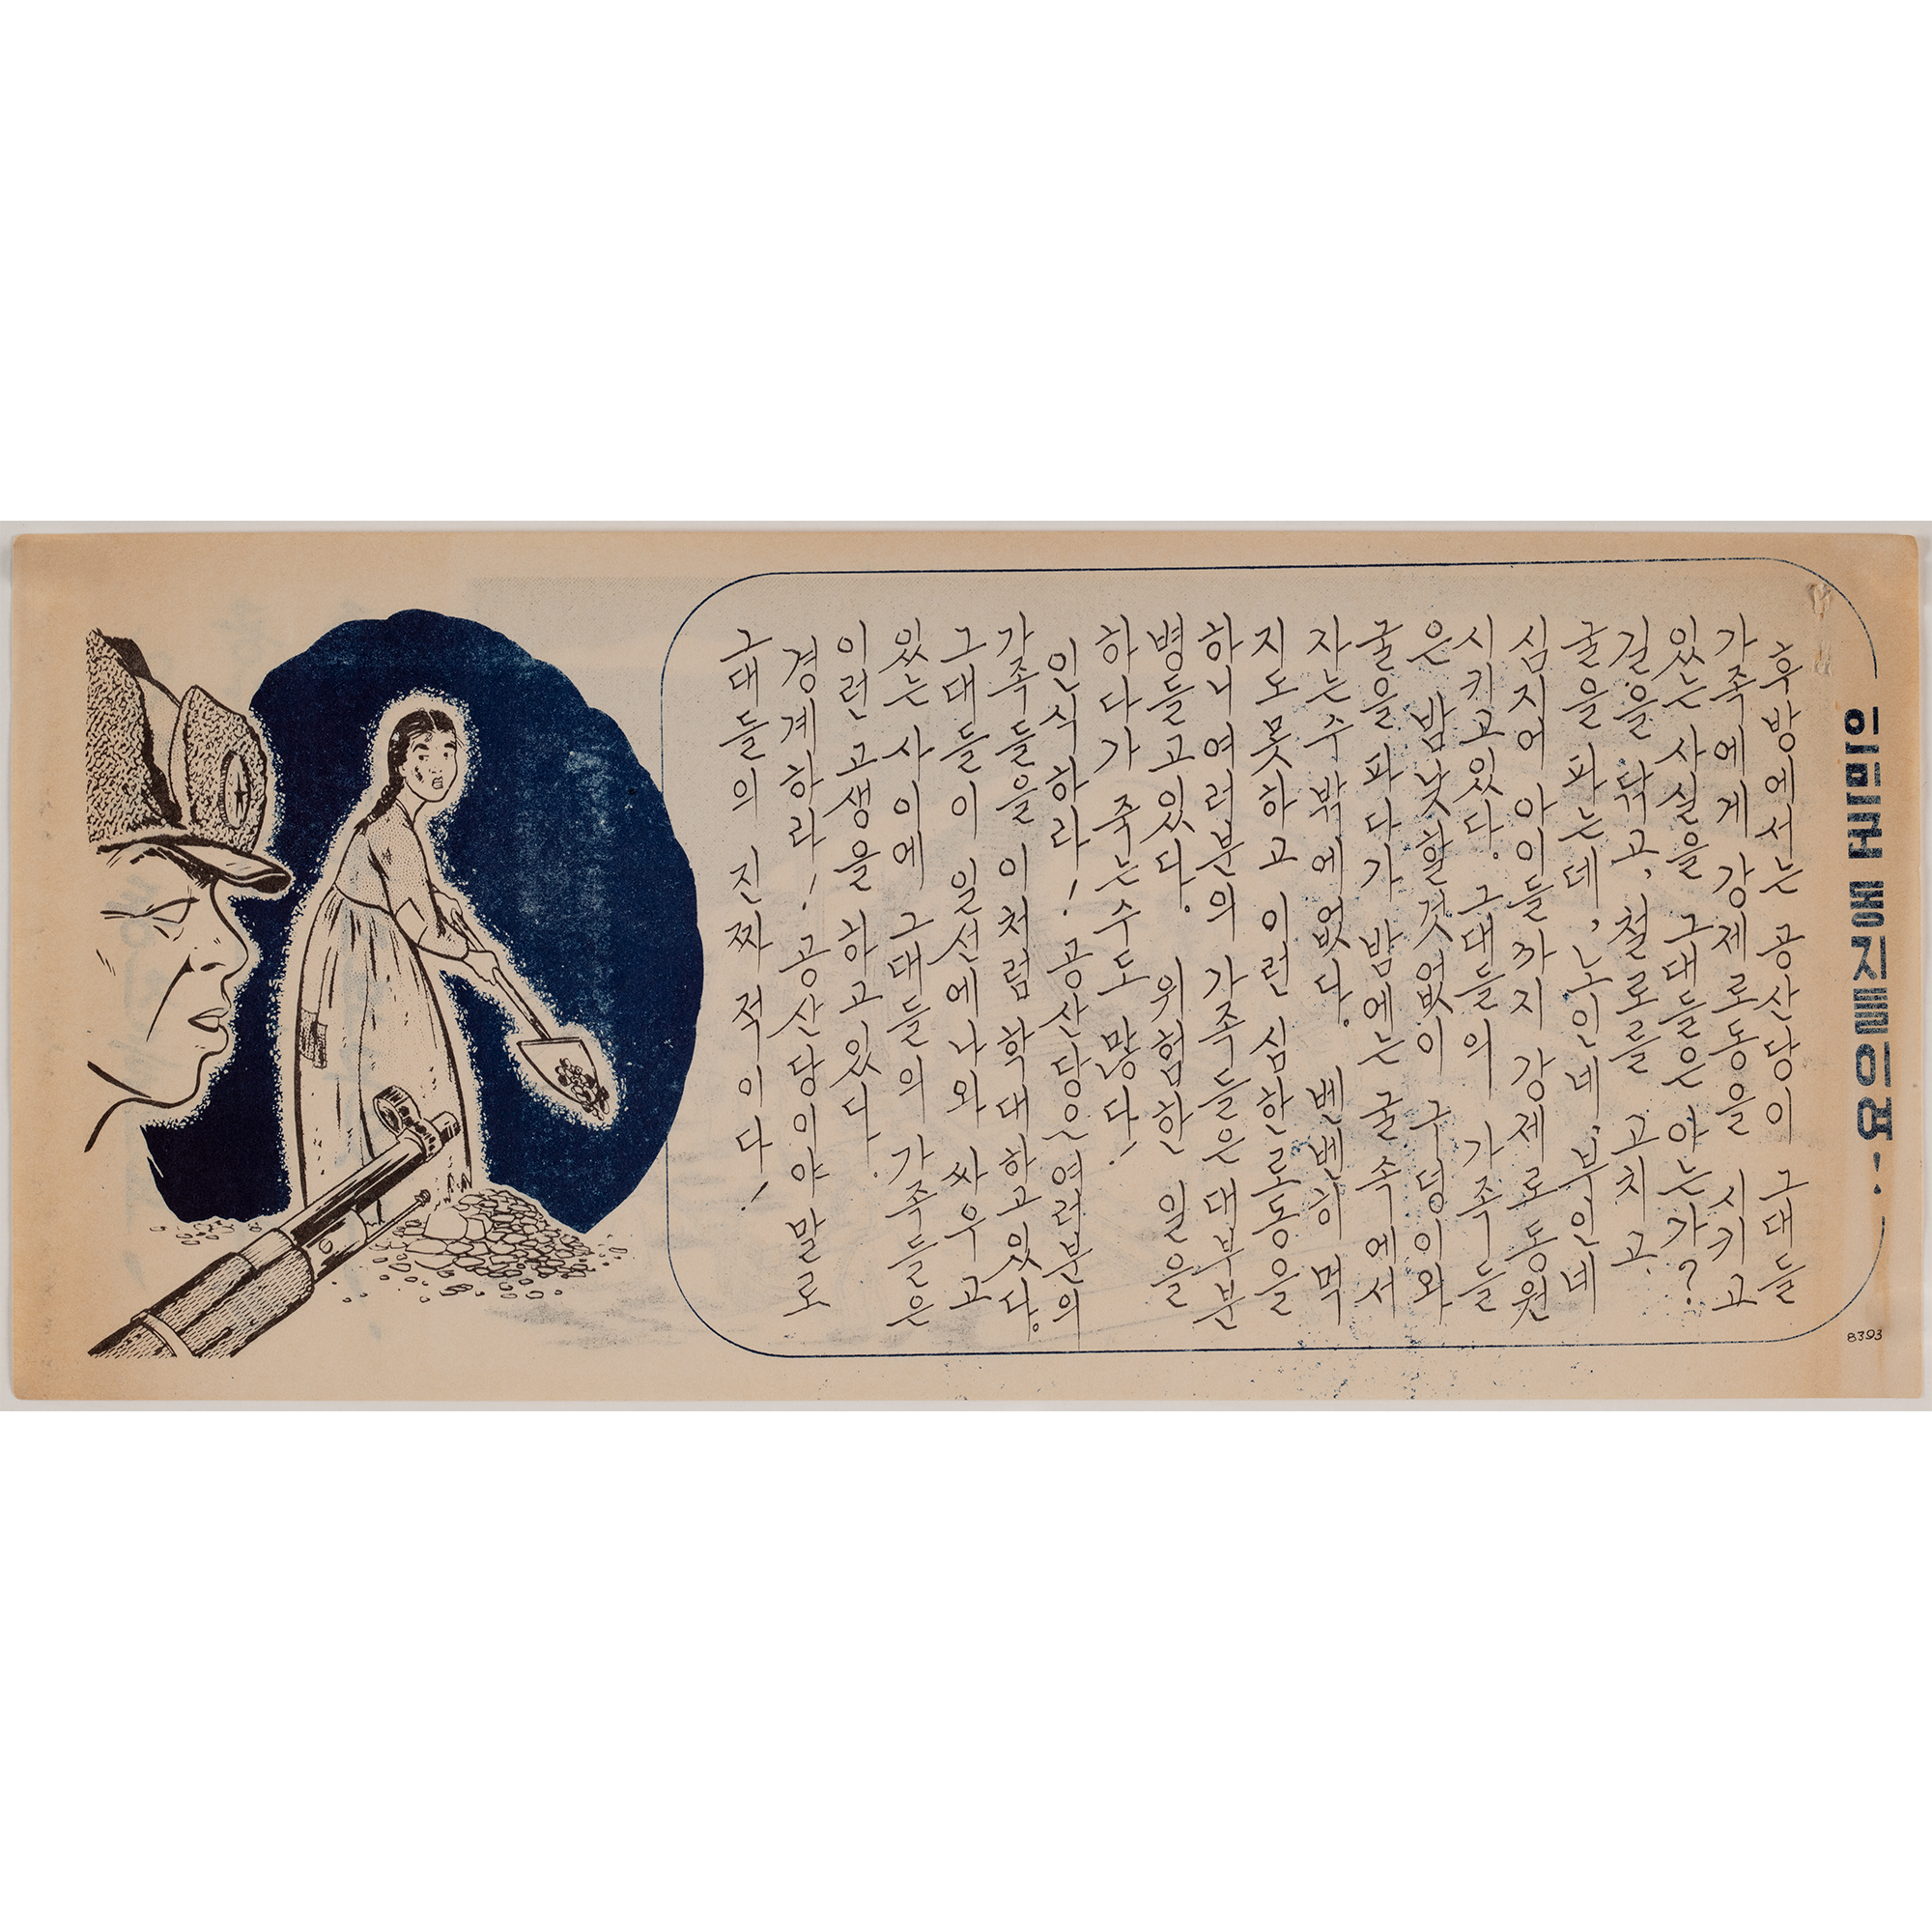 인민군 동지들이요!
후방에서는 공산당이 그대들
가족에게 강제로동을 시키고
있는 사실을 그대들은 아는가?
길을 닦고, 철로를 고치고.
굴을 파는데, 노인네, 부인네
심지어 아이들까지 강제로 동원
시키고있다. 그대들의 가족들
은 밤낮할것없이 구덩이와
굴을 파다가 밤에는 굴속에서
자는수밖에없다. 뻰뻰히 먹
지도못하고 이런 심한로동을
하니 여러분의 가족들은 대부분
병들고있다. 위험한 일을
하다가 죽는수도 많다!
인식하라! 공산당은 여러분의
가족들을 이처럼 학대하고있다.
그대들이 일선에나와 싸우고
있는 사이에 그대들의 가족들은
이런 고생을 하고있다.
경계하라! 공산당이야말로
그대들의 진짜 적이다!
8393